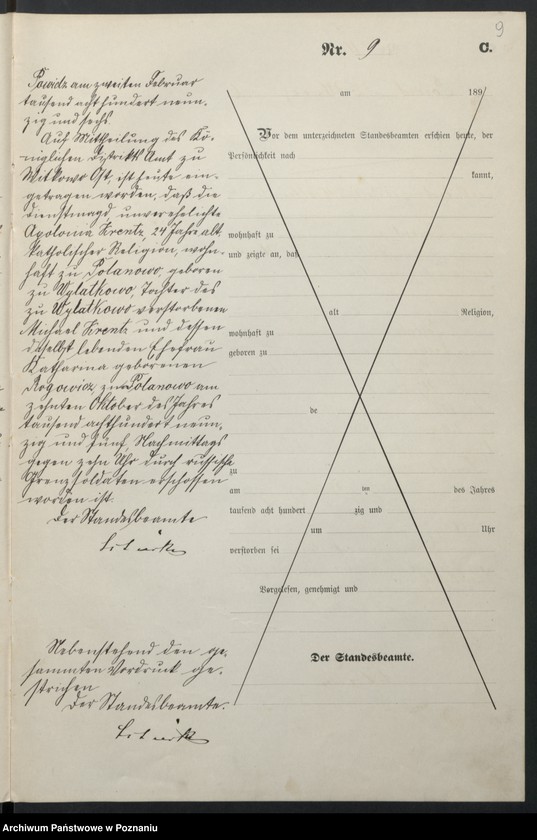 9
Nr. 9 C.
Powidz am zweiten Februar
tausend acht hundert neun-
zig und sechs.
Auf Mittheilung des Kö-
niglichen Distrikts Amt zu
Witkowo Ost, ist heute ein-
getragen worden, daß die
Dienstmagd, unverehelichte
Apolonia Krentz, 24 Jahre alt,
katholischer Religion, wohn-
haft zu Polanowo, geboren
zu Wylatkowo, Tochter des
zu Wylatkowo verstorbenen
Michael Krentz und dessen
daselbst lebenden Ehefrau
Katharina geborenen
Rogowicz, zu Polanowo am
zehnten Oktober des Jahres
tausend achthundert neun-
zig und fünf, Nachmittags
gegen zehn Uhr durch russische
Grenzsoldaten erschossen
worden ist.
Der Standesbeamte
Nebenstehend den ge-
sammten Vordruck ge-
strichen
Der Standesbeamte.
am 189
Vor dem unterzeichneten Standesbeamten erschien heute, der
Persönlichkeit nach
kannt,
wohnhaft zu
und zeigte an, daß
alt Religion,
wohnhaft zu
geboren zu
de
zu
am ten des Jahres
tausend acht hundert zig und
um Uhr
verstorben sei
Vorgelesen, genehmigt und
Der Standesbeamte.
Archiwum Państwowe w Poznaniu